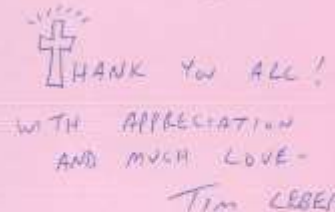 THANK YOU ALL!
WITH APPRECIATION
AND MUCH LOVE-
TIM